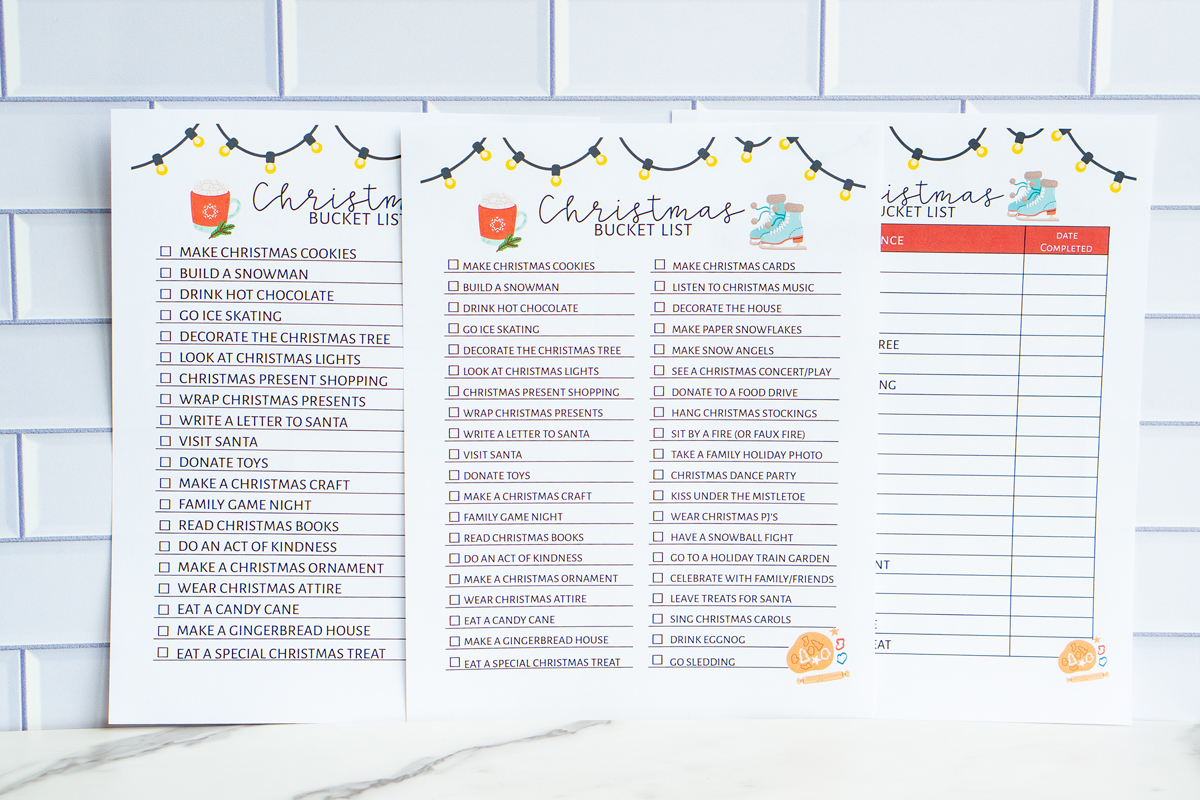 Christm
BUCKET LIST
MAKE CHRISTMAS COOKIES
BUILD A SNOWMAN
DRINK HOT CHOCOLATE
GO ICE SKATING
DECORATE THE CHRISTMAS TREE
LOOK AT CHRISTMAS LIGHTS
CHRISTMAS PRESENT SHOPPING
WRAP CHRISTMAS PRESENTS
WRITE A LETTER TO SANTA
VISIT SANTA
DONATE TOYS
MAKE A CHRISTMAS CRAFT
FAMILY GAME NIGHT
READ CHRISTMAS BOOKS
DO AN ACT OF KINDNESS
MAKE A CHRISTMAS ORNAMENT
WEAR CHRISTMAS ATTIRE
EAT A CANDY CANE
MAKE A GINGERBREAD HOUSE
EAT A SPECIAL CHRISTMAS TREAT
Christmas
BUCKET LIST
MAKE CHRISTMAS COOKIES
BUILD A SNOWMAN
DRINK HOT CHOCOLATE
GO ICE SKATING
DECORATE THE CHRISTMAS TREE
LOOK AT CHRISTMAS LIGHTS
CHRISTMAS PRESENT SHOPPING
WRAP CHRISTMAS PRESENTS
WRITE A LETTER TO SANTA
VISIT SANTA
DONATE TOYS
MAKE A CHRISTMAS CRAFT
FAMILY GAME NIGHT
READ CHRISTMAS BOOKS
DO AN ACT OF KINDNESS
MAKE A CHRISTMAS ORNAMENT
WEAR CHRISTMAS ATTIRE
EAT A CANDY CANE
MAKE A GINGERBREAD HOUSE
EAT A SPECIAL CHRISTMAS TREAT
MAKE CHRISTMAS CARDS
LISTEN TO CHRISTMAS MUSIC
DECORATE THE HOUSE
MAKE PAPER SNOWFLAKES
MAKE SNOW ANGELS
SEE A CHRISTMAS CONCERT/PLAY
DONATE TO A FOOD DRIVE
HANG CHRISTMAS STOCKINGS
SIT BY A FIRE (OR FAUX FIRE)
TAKE A FAMILY HOLIDAY PHOTO
CHRISTMAS DANCE PARTY
KISS UNDER THE MISTLETOE
WEAR CHRISTMAS PJ'S
HAVE A SNOWBALL FIGHT
GO TO A HOLIDAY TRAIN GARDEN
CELEBRATE WITH FAMILY/FRIENDS
LEAVE TREATS FOR SANTA
SING CHRISTMAS CAROLS
DRINK EGGNOG
GO SLEDDING
istmas
UCKET LIST
NCE
DATE
COMPLETED
REE
NG
NT
E
EAT